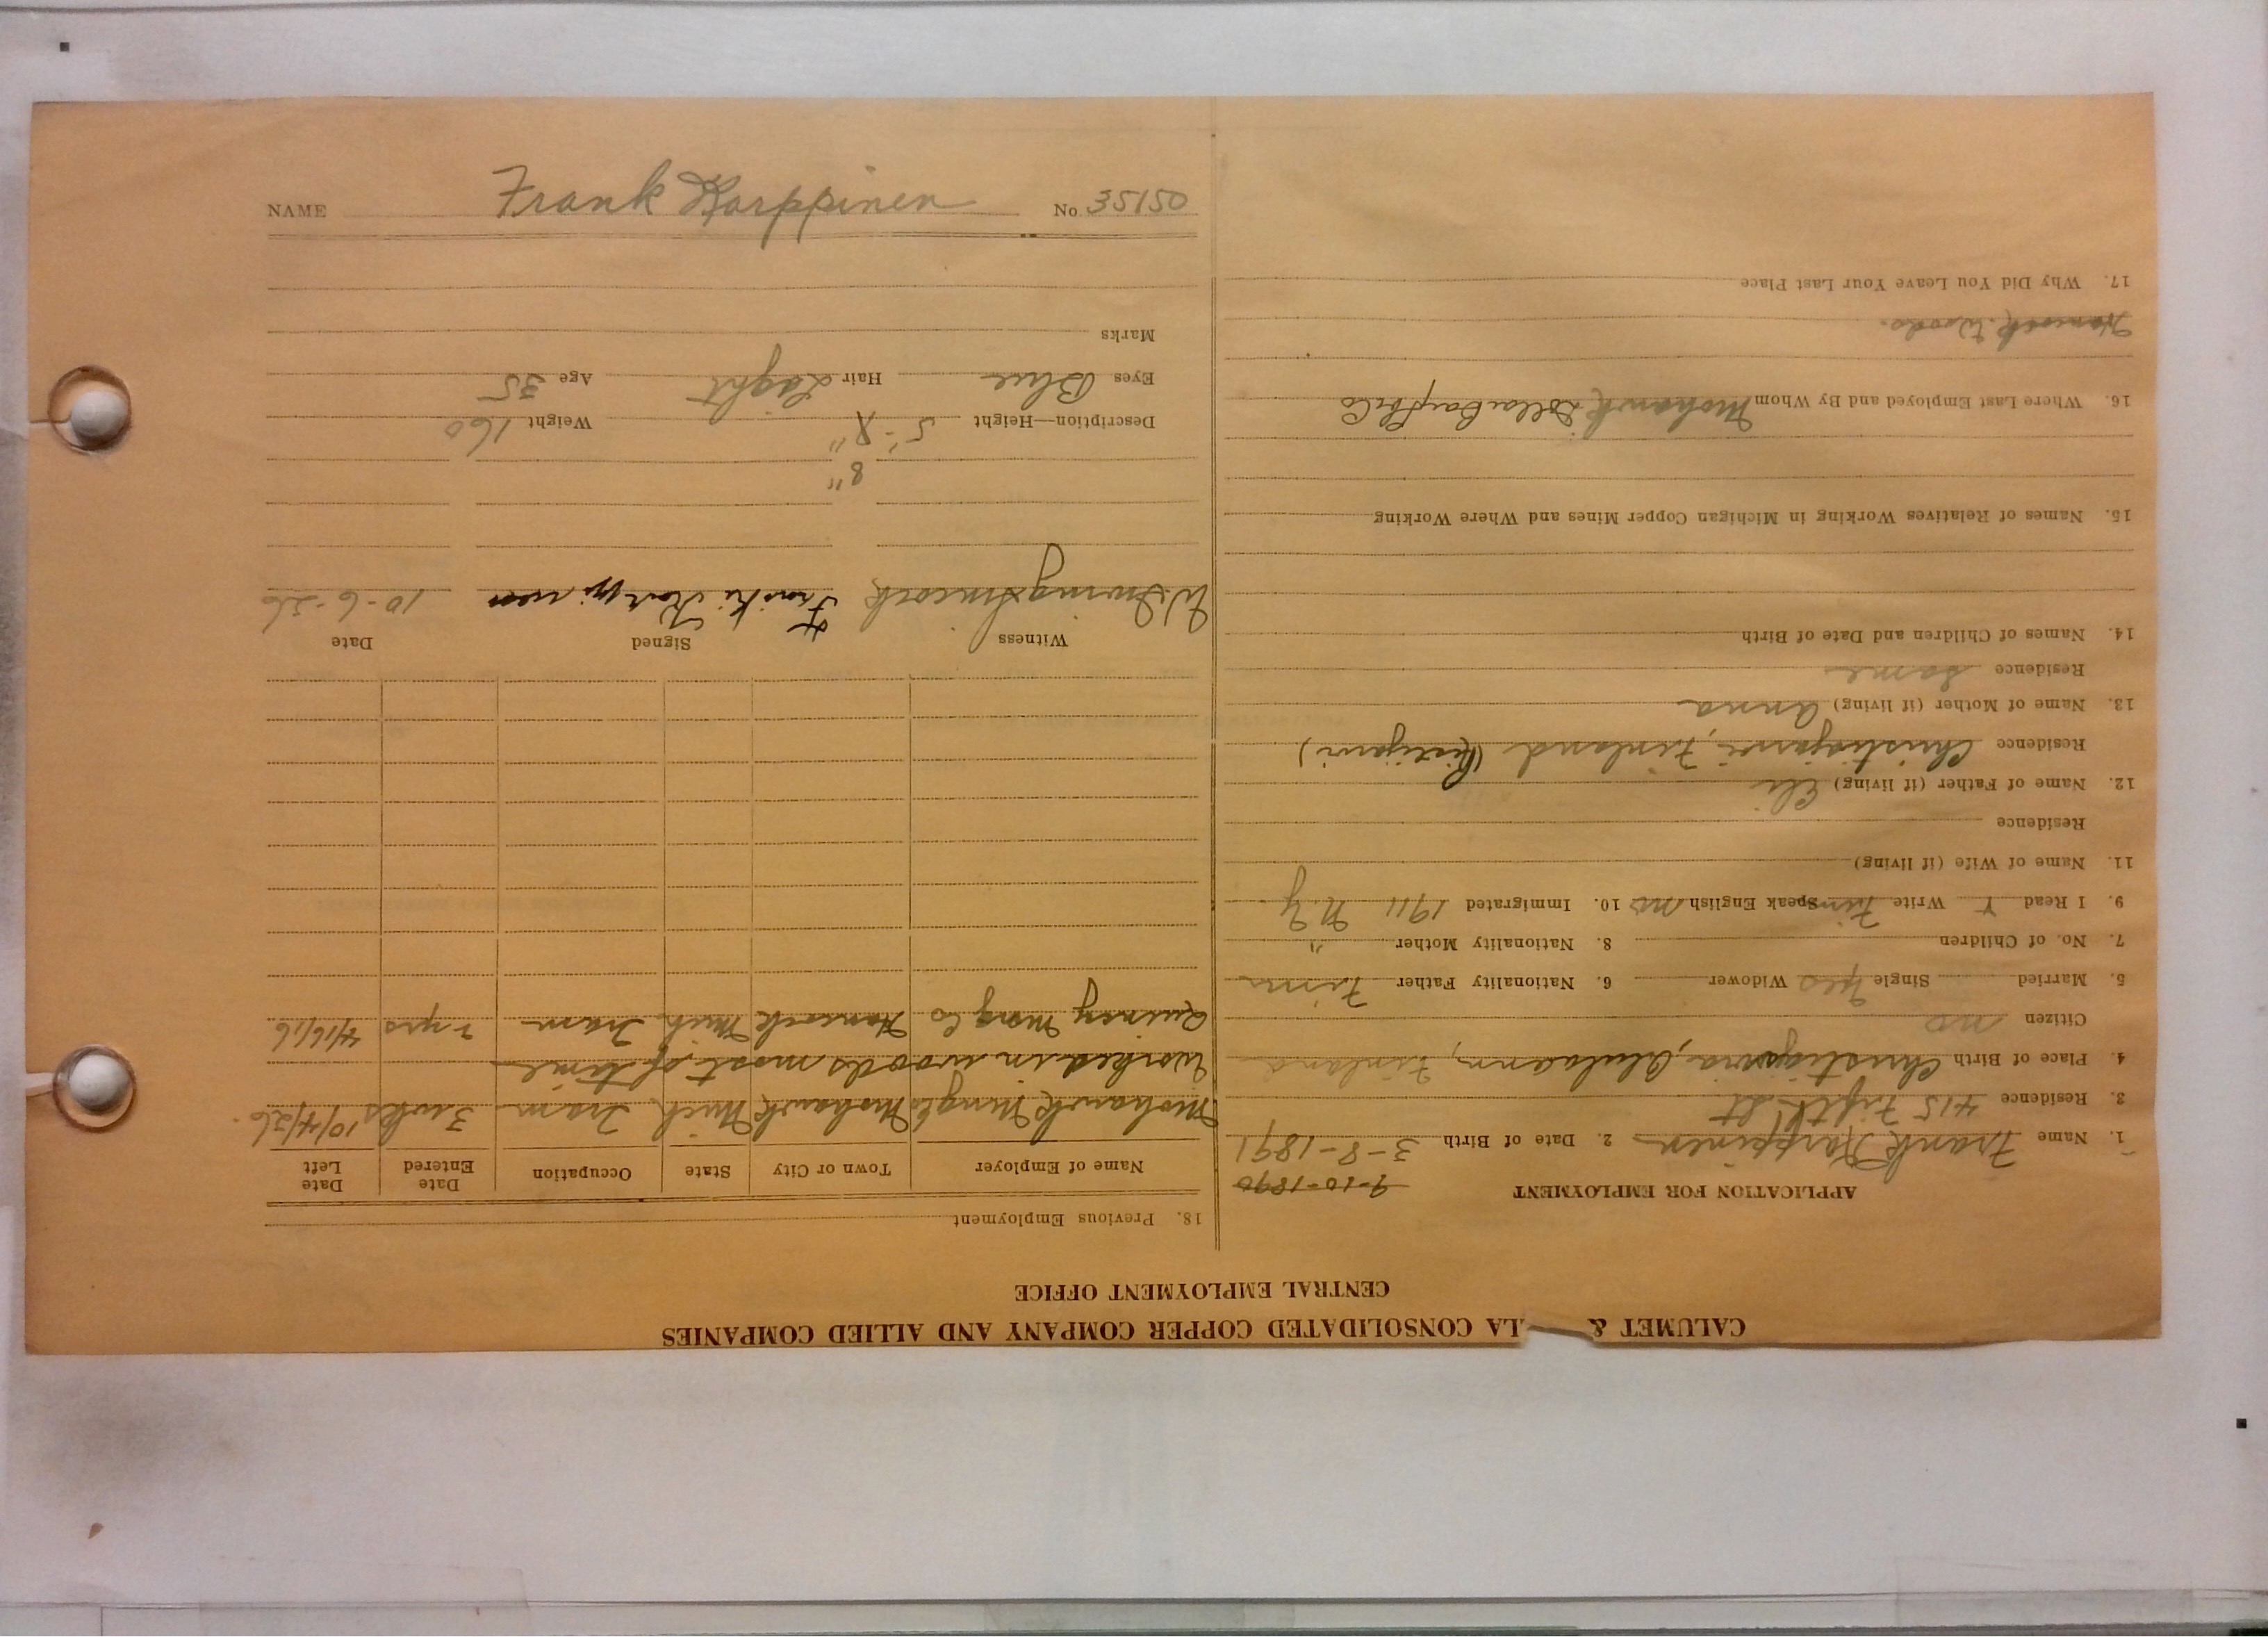 NAME Frank Karppinen No. 35150
CALUMET & LA CONSOLIDATED COPPER COMPANY AND ALLIED COMPANIES
CENTRAL EMPLOYMENT OFFICE
APPLICATION FOR EMPLOYMENT 9-10-1890
1. Name Frank Karppinen 2. Date of Birth 3-8-1891
3. Residence 415 Fifth St
4. Place of Birth Christijarvia, Finland
Citizen no
5. Married Single Yes Widower 6. Nationality Father Finn
7. No. of Children 8. Nationality Mother "
9. I Read Y Write Finn Speak English no 10. Immigrated 1911 N.Y
11. Name of Wife (if living)
Residence
12. Name of Father (if living) Eli
Residence Christijarvi, Finland (Ristijarvi)
13. Name of Mother (if living) Anna
Residence Same
14. Names of Children and Date of Birth
15. Names of Relatives Working in Michigan Copper Mines and Where Working
16. Where Last Employed and By Whom Mohawk
Hancock Woods.
17. Why Did You Leave Your Last Place
18. Previous Employment
Name of Employer Town or City State Occupation Date Entered Date Left
Mohawk Mohawk Mich Tram 3 wks 10/4/26.
Worked in woods most of time
Quincy Mng Co Hancock Mich Tram 2 yrs 4/16/16
Witness Signed Date
10-6-26
8"
Description—Height 5'-8" Weight 160
Eyes Blue Hair Light Age 35
Marks